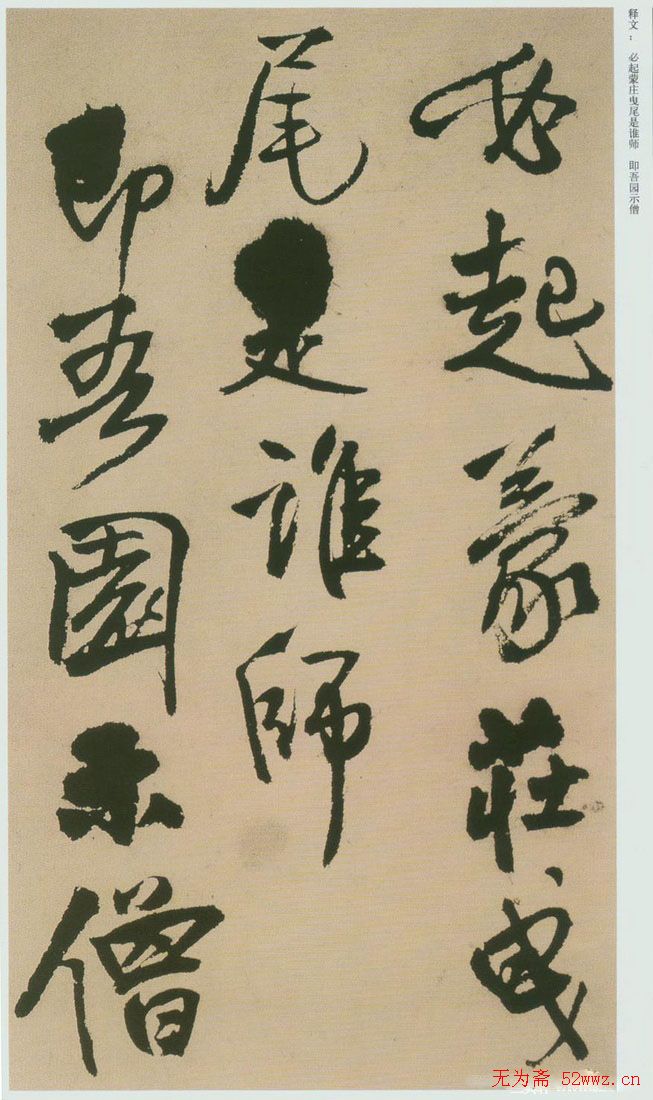 释文： 必起蒙庄曳尾是谁师 即吾园示僧
必起蒙莊曳
尾是誰師
即吾園示僧
无为斋 52wwz.cn